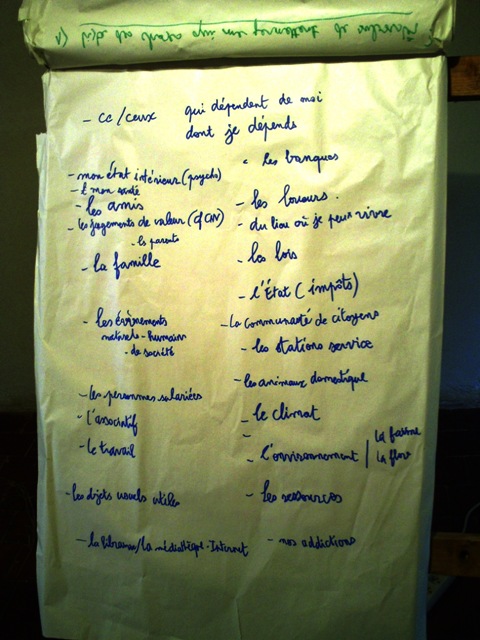 - CC/Ceux qui dépendent de moi
dont je dépends
- les banques
- mon état intérieur (psycho)
- et mon santé
- les amis
- les jugements de valeur (cf CNV)
- les parents
- la famille
- les évènements
naturels - humain
- de société
- les personnes salariées
- l'associatif
- le travail
- les objets usuels utiles
- la librairie/la médiathèque - Internet
- les loueurs.
- du lieu où je peux vivre
- les lois
- l'État (impôts)
- la communauté de citoyens
- les stations service
- les animaux domestique
- le climat
-
- l'environnement | la faune
la flore
- les ressources
- nos addictions